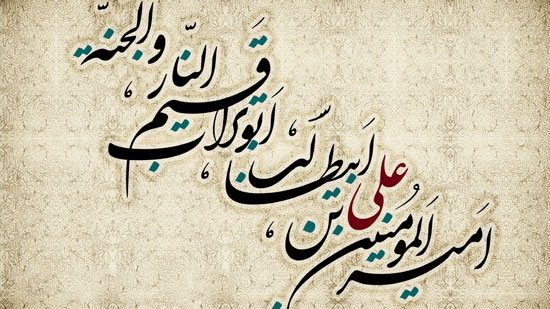 امیر المؤمنین
علی بن
ابیطالب
ابوتراب
قسیم
النّار والجنّة